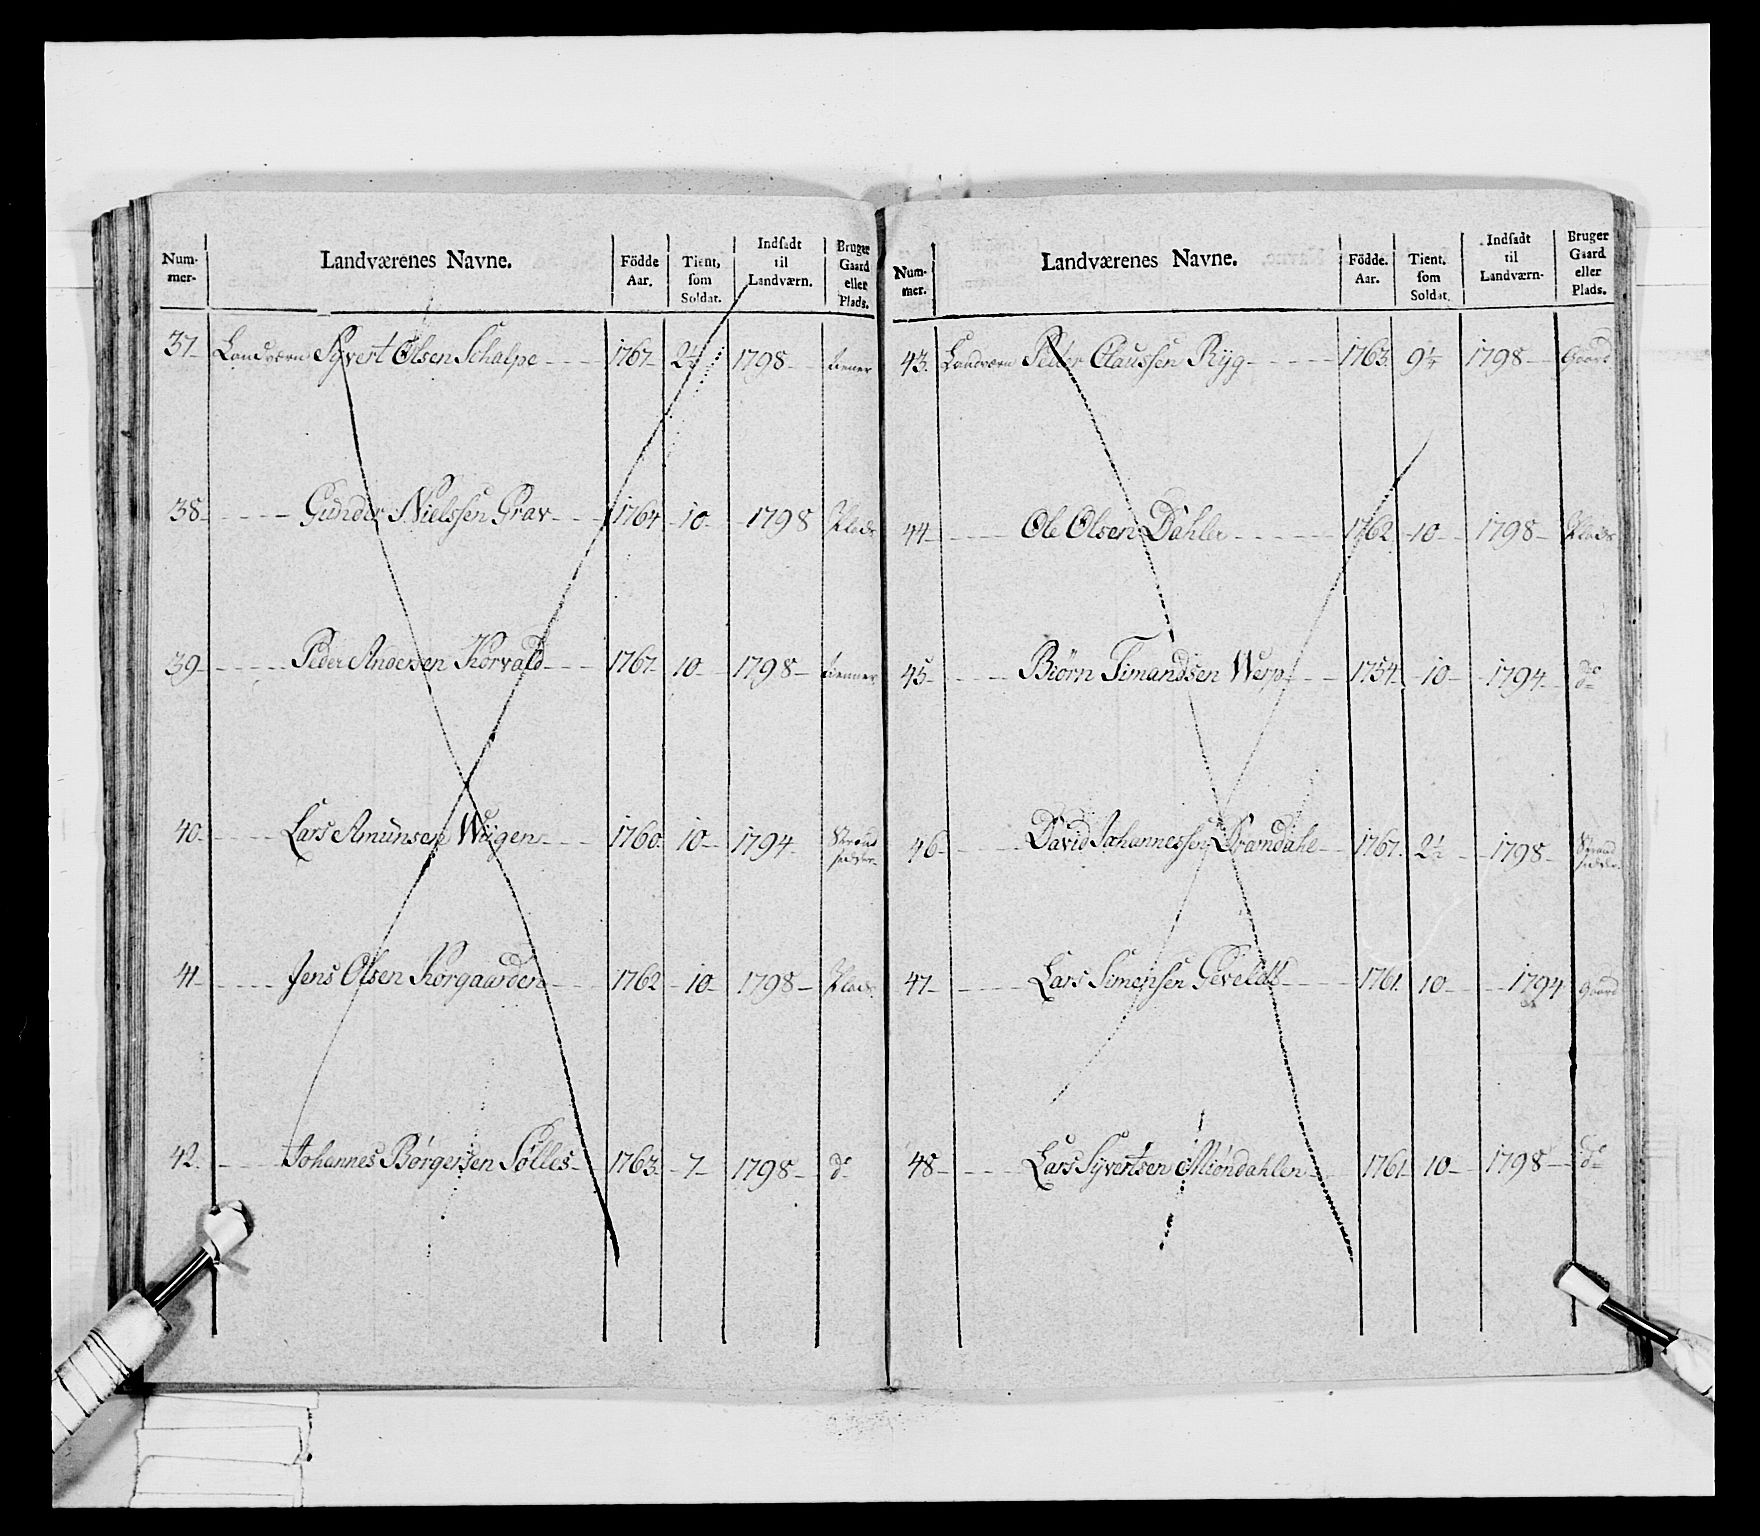 Num-
mer.
Landværenes Navne.
Födde
Aar.
Tient,
som
Soldat.
Indsadt
til
Landværn.
Bruger
Gaard
eller
Plads.
37 Landværn Syvert Olsen Schalpe 1767 2½ 1798 tiener
38 Gunder Nielssen Grav 1764 10 1798 Plads
39 Peder Andersen Korvald 1767 10 1798 tienner
40 Lars Amünsen Wiigen 1760 10 1794 Strand
sidder
41 Jens Olsen Korgaarden 1762 10 1798 Plads
42 Johannes Børgersen Sølles 1763 7 1798 do
Num-
mer.
Landværenes Navne.
Födde.
Aar.
Tient.
som
Soldat.
Indsadt
til
Landværn.
Bruger
Gaard
eller
Plads.
43 Landværn Peder Claussen Ryg 1763 9¼ 1798 Gaard
44 Ole Olsen Dahler 1762 10 1798 Plads
45 Biörn Timandsen Werp 1754 10 1794 do
46 David Johannessen 1767 2½ 1798 Strand
sidder
47 Lars Simensen Geveldt 1761 10 1794 Gaard
48 Lars Syvertsen Miöndahlen 1761 10 1798 do